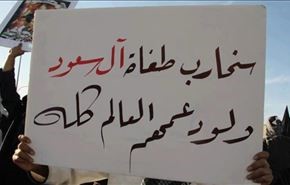 سنحارب طغاة آل سعود
ولو دعمهم العالم كله